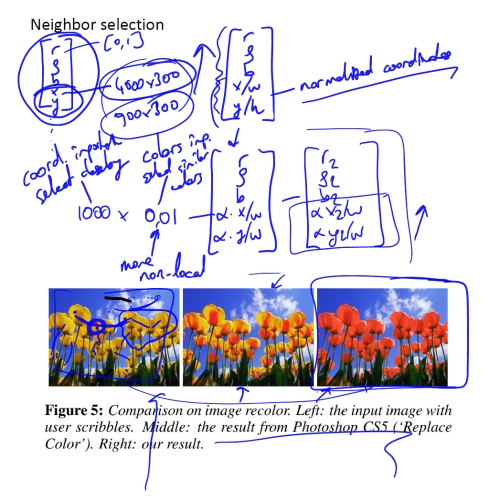 Neighbor selection
[0,1]
r
g
b
x
y
4000x300
900x300
r
g
b
x/w
y/h
normalized coordinates
coord. important
select nearby
colors imp.
select similar
colors
1000 x 0,01
more
non-local
r
g
b
α · x/w
α · y/w
r2
g2
b2
α x2/w
α y2/w
Figure 5: Comparison on image recolor. Left: the input image with
user scribbles. Middle: the result from Photoshop CS5 (‘Replace
Color’). Right: our result.